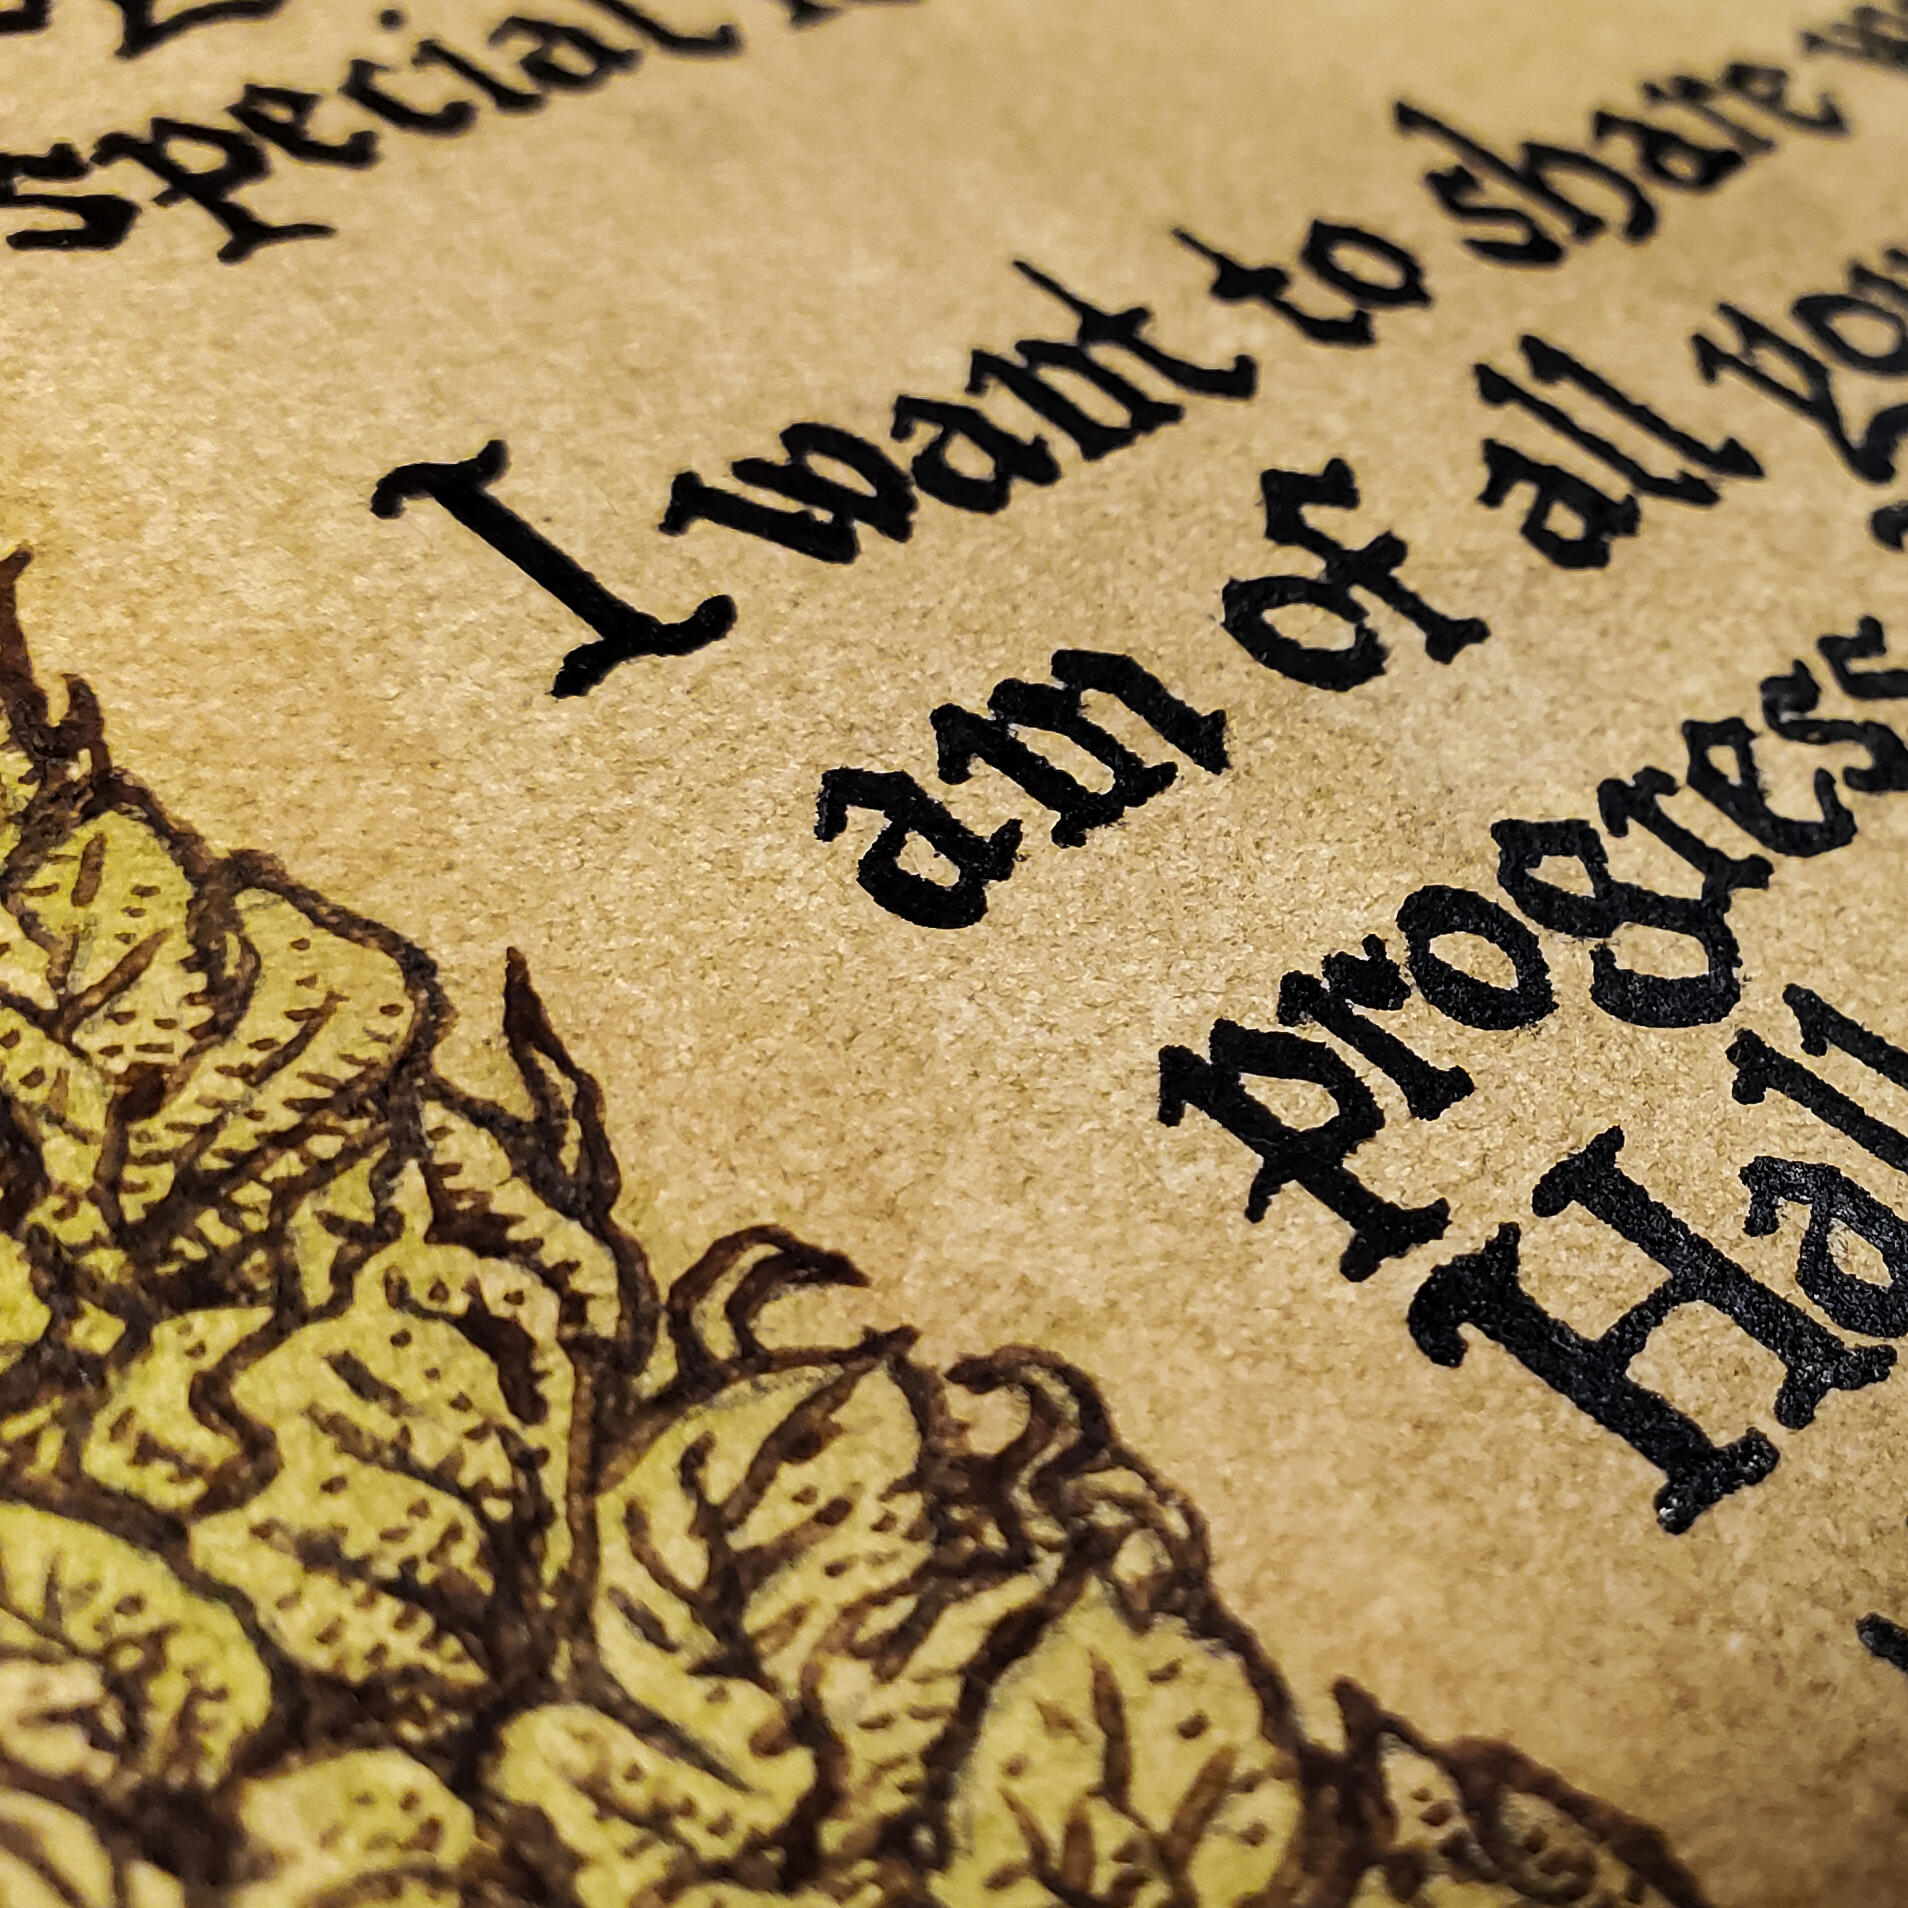 special
I want to share
am of all
progress
Hall